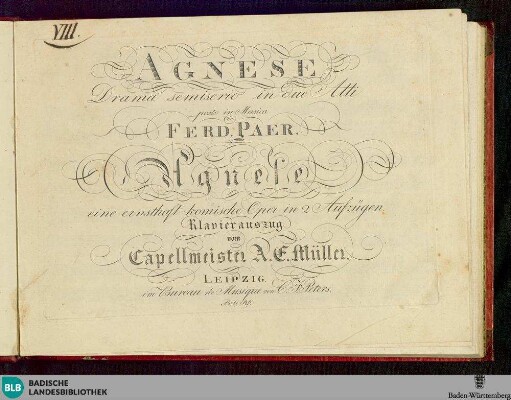 VIII.
AGNESE
Drama semiserio in due Atti
posto in Musica
FERD. PAER.
Agnese
eine ernsthaft komische Oper in 2 Aufzügen
Klavierauszug
vom
Capellmeister A. E. Müller.
LEIPZIG,
im Bureau de Musique von C. F. Peters.
BLB
BADISCHE
LANDESBIBLIOTHEK
Baden-Württemberg